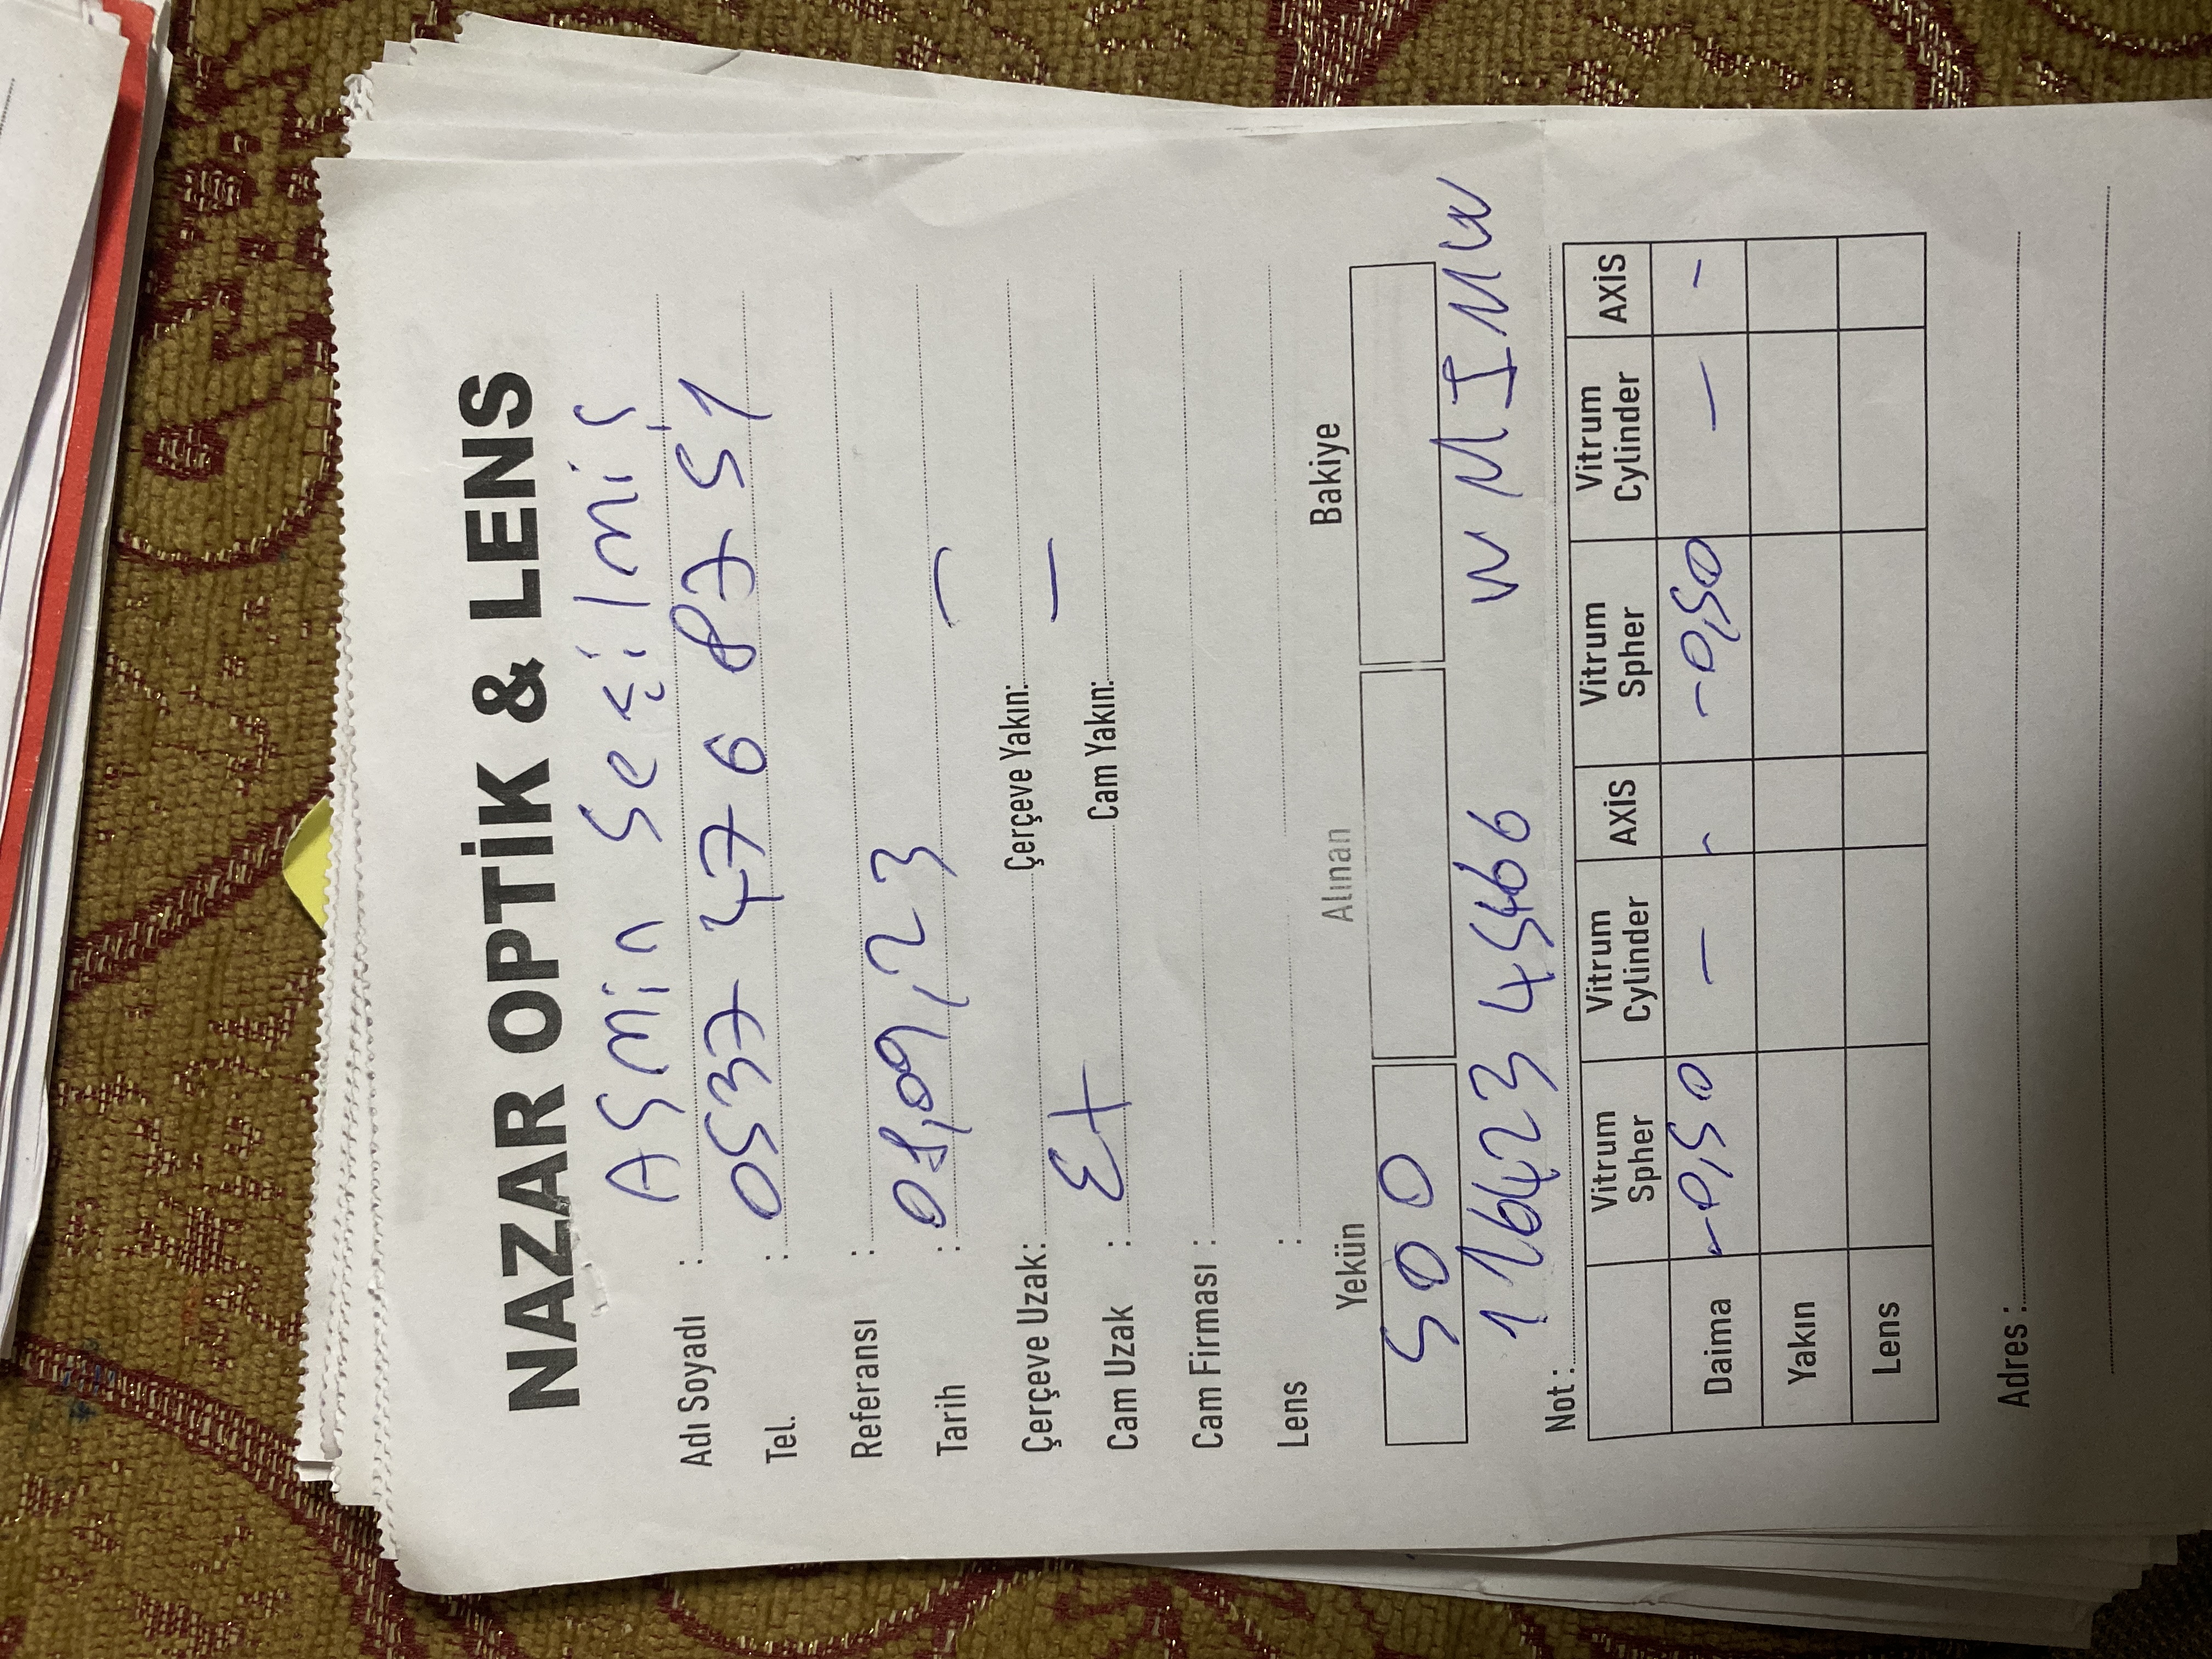 NAZAR OPTİK & LENS
Adı Soyadı : Aşmin Seçilmiş
Tel. : 0537 47 6 87 51
Referansı :
Tarih : 01,09,23
Çerçeve Uzak: Çerçeve Yakın: —
Cam Uzak : Cam Yakın: —
Cam Firması :
Lens :
Yekün Alınan Bakiye
500
Not :
Vitrum Spher Vitrum Cylinder AXİS Vitrum Spher Vitrum Cylinder AXİS
Daima -0,50 — - -0,50 — -
Yakın
Lens
Adres :